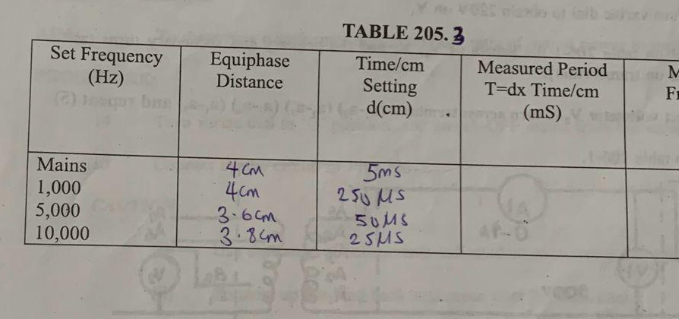 TABLE 205.3
Set Frequency (Hz) Equiphase Distance Time/cm Setting d(cm) Measured Period T=dx Time/cm (mS)
Mains 4cm 5ms
1,000 4cm 250 μs
5,000 3.6cm 50μs
10,000 3.8cm 25μs